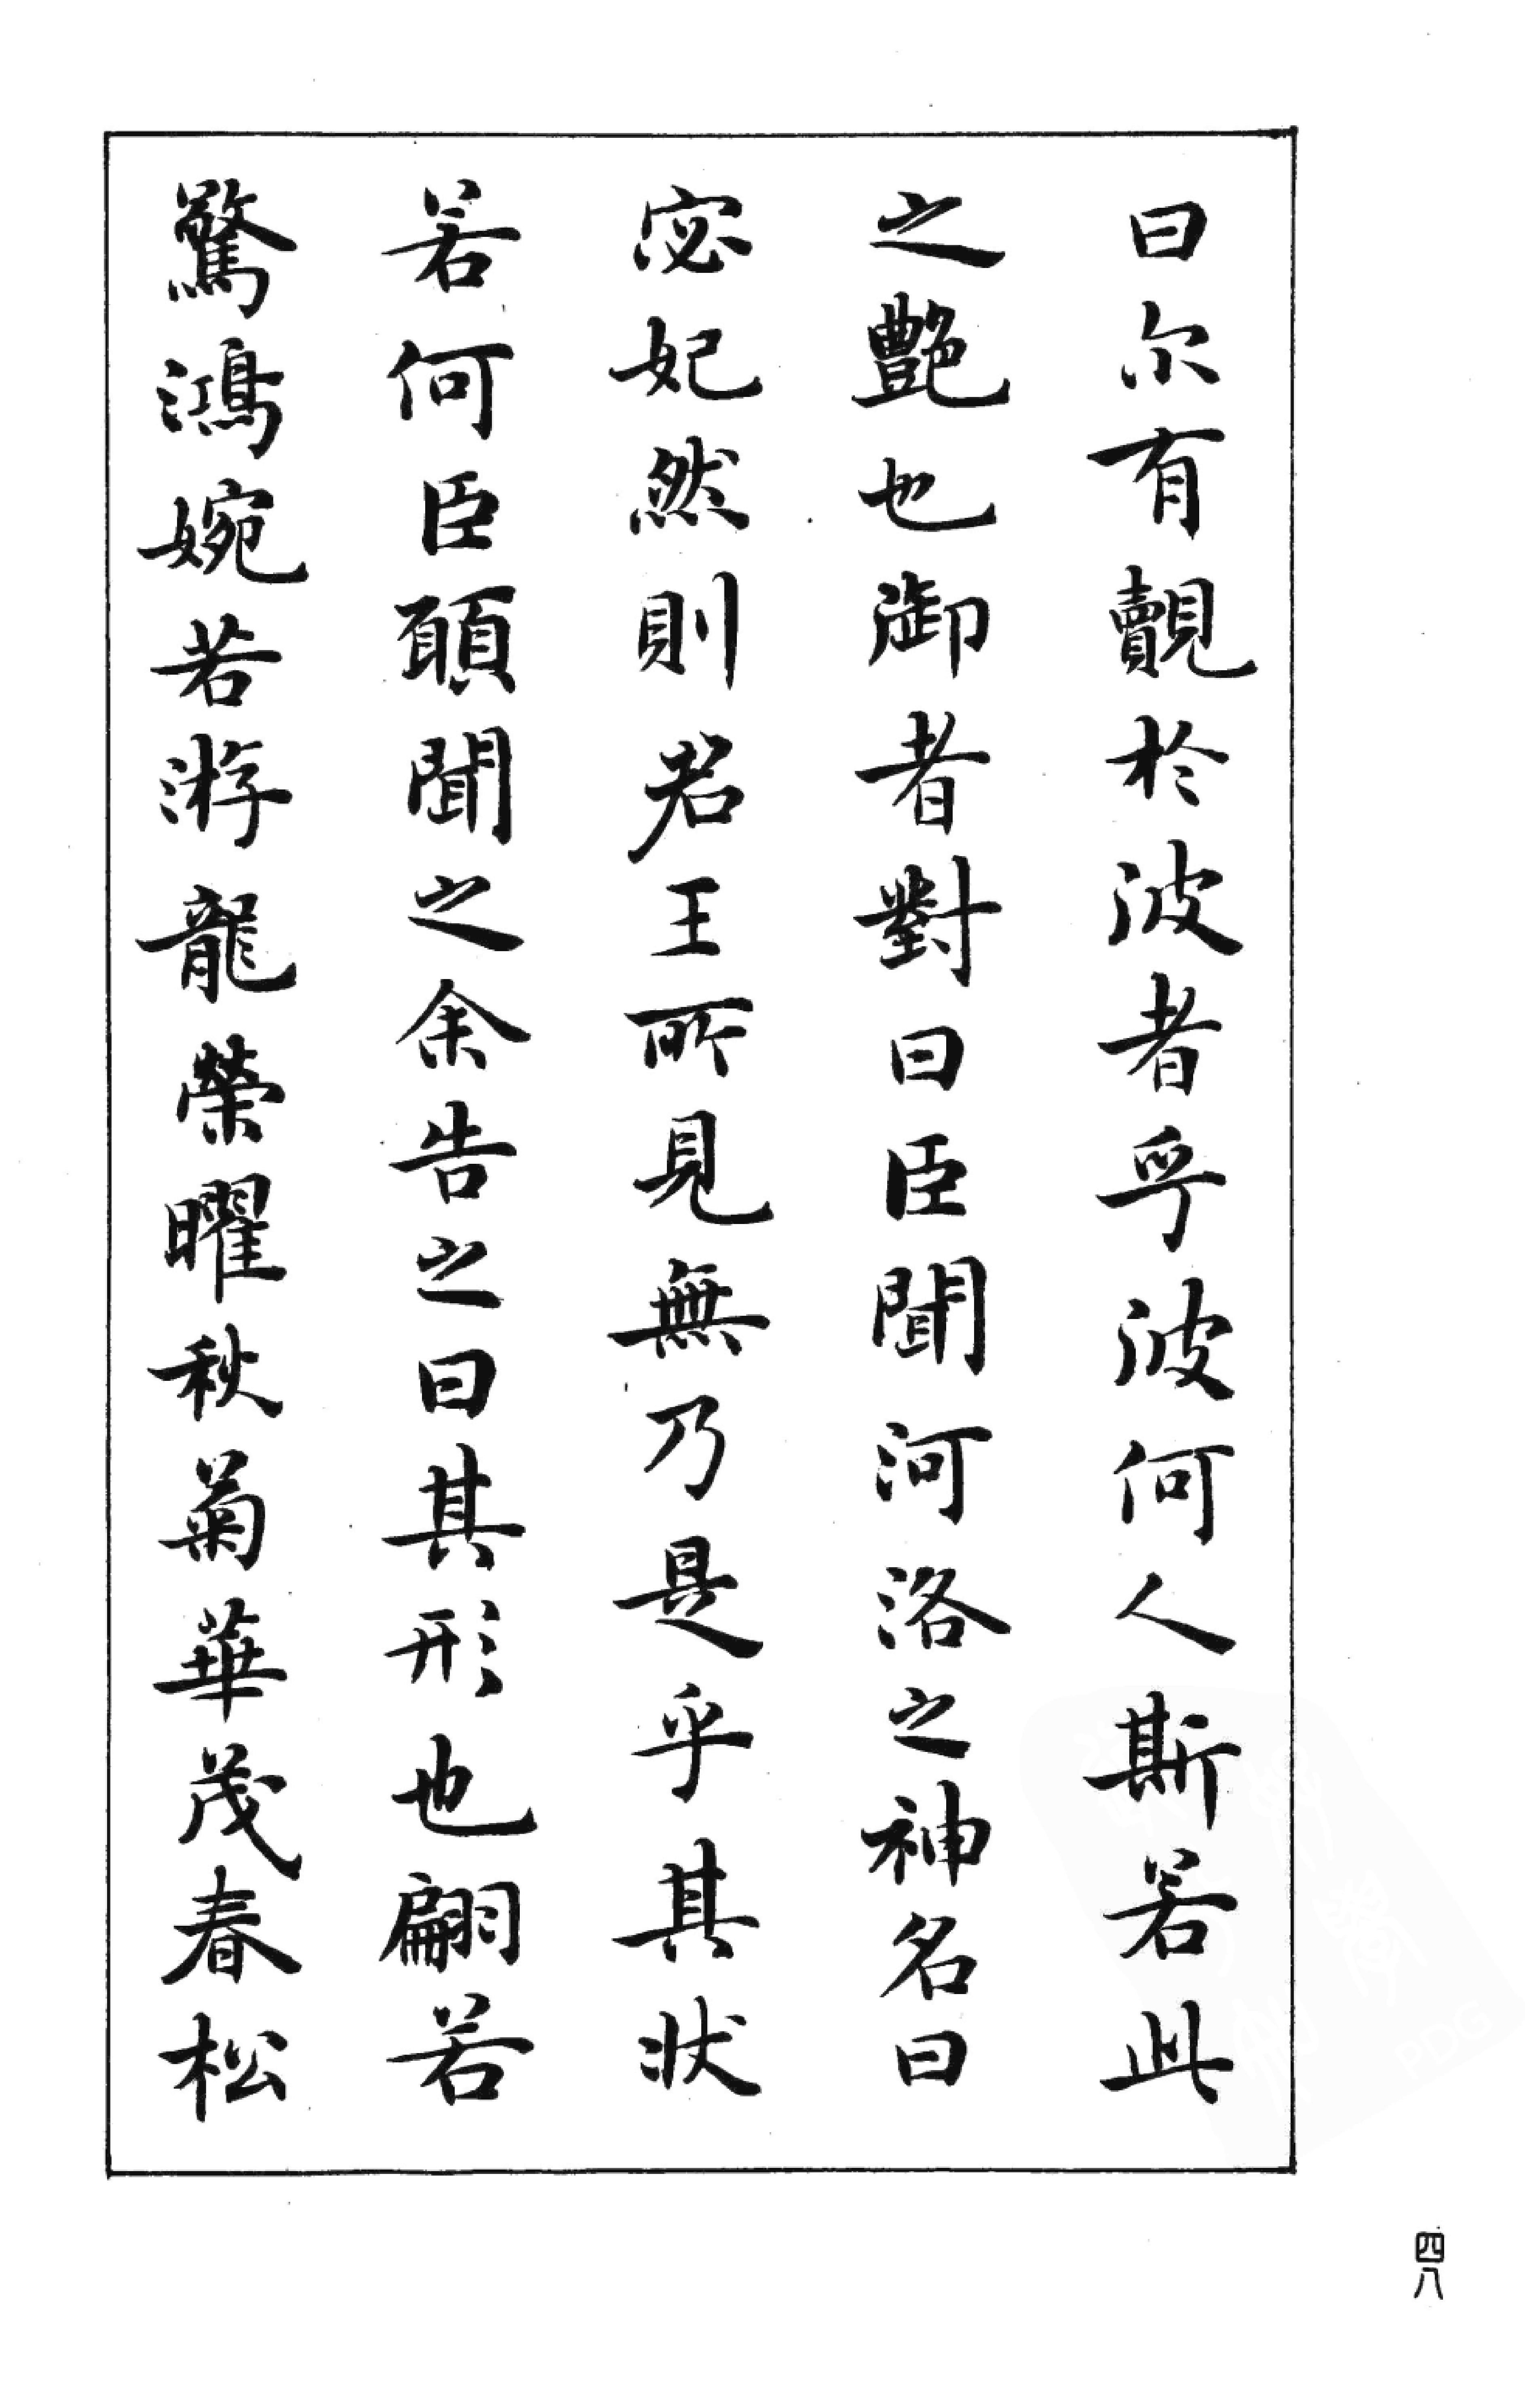 曰尔有覿於波者乎波何人斯若此
之艷也御者對曰臣聞河洛之神名曰
宓妃然則君王所見無乃是乎其狀
若何臣願聞之余告之曰其形也翩若
驚鴻婉若游龍榮曜秋菊華茂春松
四八